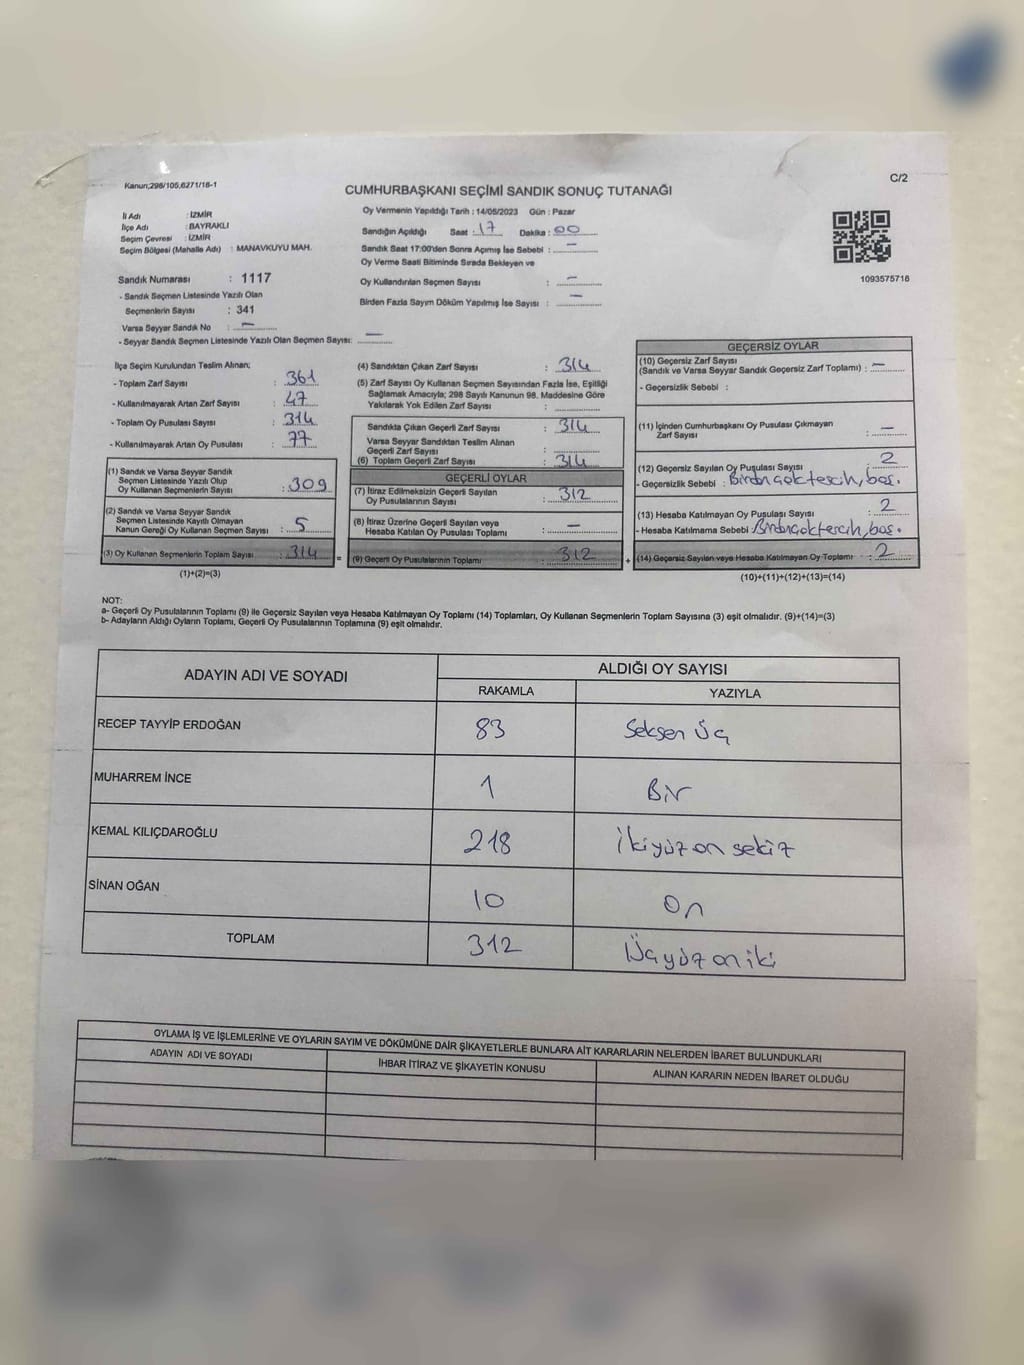 Kanun;298/105,6271/16-1
C/2
CUMHURBAŞKANI SEÇİMİ SANDIK SONUÇ TUTANAĞI
İl Adı : İZMİR
İlçe Adı : BAYRAKLI
Seçim Çevresi : İZMİR
Seçim Bölgesi (Mahalle Adı) : MANAVKUYU MAH.
Oy Vermenin Yapıldığı Tarih : 14/05/2023 Gün : Pazar
Sandığın Açıldığı Saat : 17 Dakika : 00
Sandık Saat 17:00'den Sonra Açımış İse Sebebi : —
Oy Verme Saati Bitiminde Sırada Bekleyen ve
Oy Kullandırılan Seçmen Sayısı : —
Birden Fazla Sayım Döküm Yapılmış İse Sayısı : —
1093575716
Sandık Numarası : 1117
- Sandık Seçmen Listesinde Yazılı Olan
Seçmenlerin Sayısı : 341
Varsa Seyyar Sandık No : —
- Seyyar Sandık Seçmen Listesinde Yazılı Olan Seçmen Sayısı: —
İlçe Seçim Kurulundan Teslim Alınan;
- Toplam Zarf Sayısı : 361
- Kullanılmayarak Artan Zarf Sayısı : 47
- Toplam Oy Pusulası Sayısı : 314
- Kullanılmayarak Artan Oy Pusulası : 77
(1) Sandık ve Varsa Seyyar Sandık
Seçmen Listesinde Yazılı Olup
Oy Kullanan Seçmenlerin Sayısı : 309
(2) Sandık ve Varsa Seyyar Sandık
Seçmen Listesinde Kayıtlı Olmayan
Kanun Gereği Oy Kullanan Seçmen Sayısı : 5
(3) Oy Kullanan Seçmenlerin Toplam Sayısı : 314 =
(1)+(2)=(3)
(4) Sandıktan Çıkan Zarf Sayısı : 314
(5) Zarf Sayısı Oy Kullanan Seçmen Sayısından Fazla İse, Eşitliği
Sağlamak Amacıyla; 298 Sayılı Kanunun 98. Maddesine Göre
Yakılarak Yok Edilen Zarf Sayısı :
Sandıkta Çıkan Geçerli Zarf Sayısı : 314
Varsa Seyyar Sandıktan Teslim Alınan
Geçerli Zarf Sayısı :
(6) Toplam Geçerli Zarf Sayısı : 314
GEÇERLİ OYLAR
(7) İtiraz Edilmeksizin Geçerli Sayılan
Oy Pusulalarının Sayısı : 312
(8) İtiraz Üzerine Geçerli Sayılan veya
Hesaba Katılan Oy Pusulası Toplamı : —
(9) Geçerli Oy Pusulalarının Toplamı : 312 +
GEÇERSİZ OYLAR
(10) Geçersiz Zarf Sayısı
(Sandık ve Varsa Seyyar Sandık Geçersiz Zarf Toplamı) : —
- Geçersizlik Sebebi :
(11) İçinden Cumhurbaşkanı Oy Pusulası Çıkmayan
Zarf Sayısı : —
(12) Geçersiz Sayılan Oy Pusulası Sayısı : 2
- Geçersizlik Sebebi :
(13) Hesaba Katılmayan Oy Pusulası Sayısı : 2
- Hesaba Katılmama Sebebi :
(14) Geçersiz Sayılan veya Hesaba Katılmayan Oy Toplamı : 2
(10)+(11)+(12)+(13)=(14)
NOT:
a- Geçerli Oy Pusulalarının Toplamı (9) ile Geçersiz Sayılan veya Hesaba Katılmayan Oy Toplamı (14) Toplamları, Oy Kullanan Seçmenlerin Toplam Sayısına (3) eşit olmalıdır. (9)+(14)=(3)
b- Adayların Aldığı Oyların Toplamı, Geçerli Oy Pusulalarının Toplamına (9) eşit olmalıdır.
ADAYIN ADI VE SOYADI
ALDIĞI OY SAYISI
RAKAMLA YAZIYLA
RECEP TAYYİP ERDOĞAN 83 Seksen Üç
MUHARREM İNCE 1 Bir
KEMAL KILIÇDAROĞLU 218 İkiyüz on sekiz
SİNAN OĞAN 10 On
TOPLAM 312 Üçyüz on iki
OYLAMA İŞ VE İŞLEMLERİNE VE OYLARIN SAYIM VE DÖKÜMÜNE DAİR ŞİKAYETLERLE BUNLARA AİT KARARLARIN NELERDEN İBARET BULUNDUKLARI
ADAYIN ADI VE SOYADI İHBAR İTİRAZ VE ŞİKAYETİN KONUSU ALINAN KARARIN NEDEN İBARET OLDUĞU